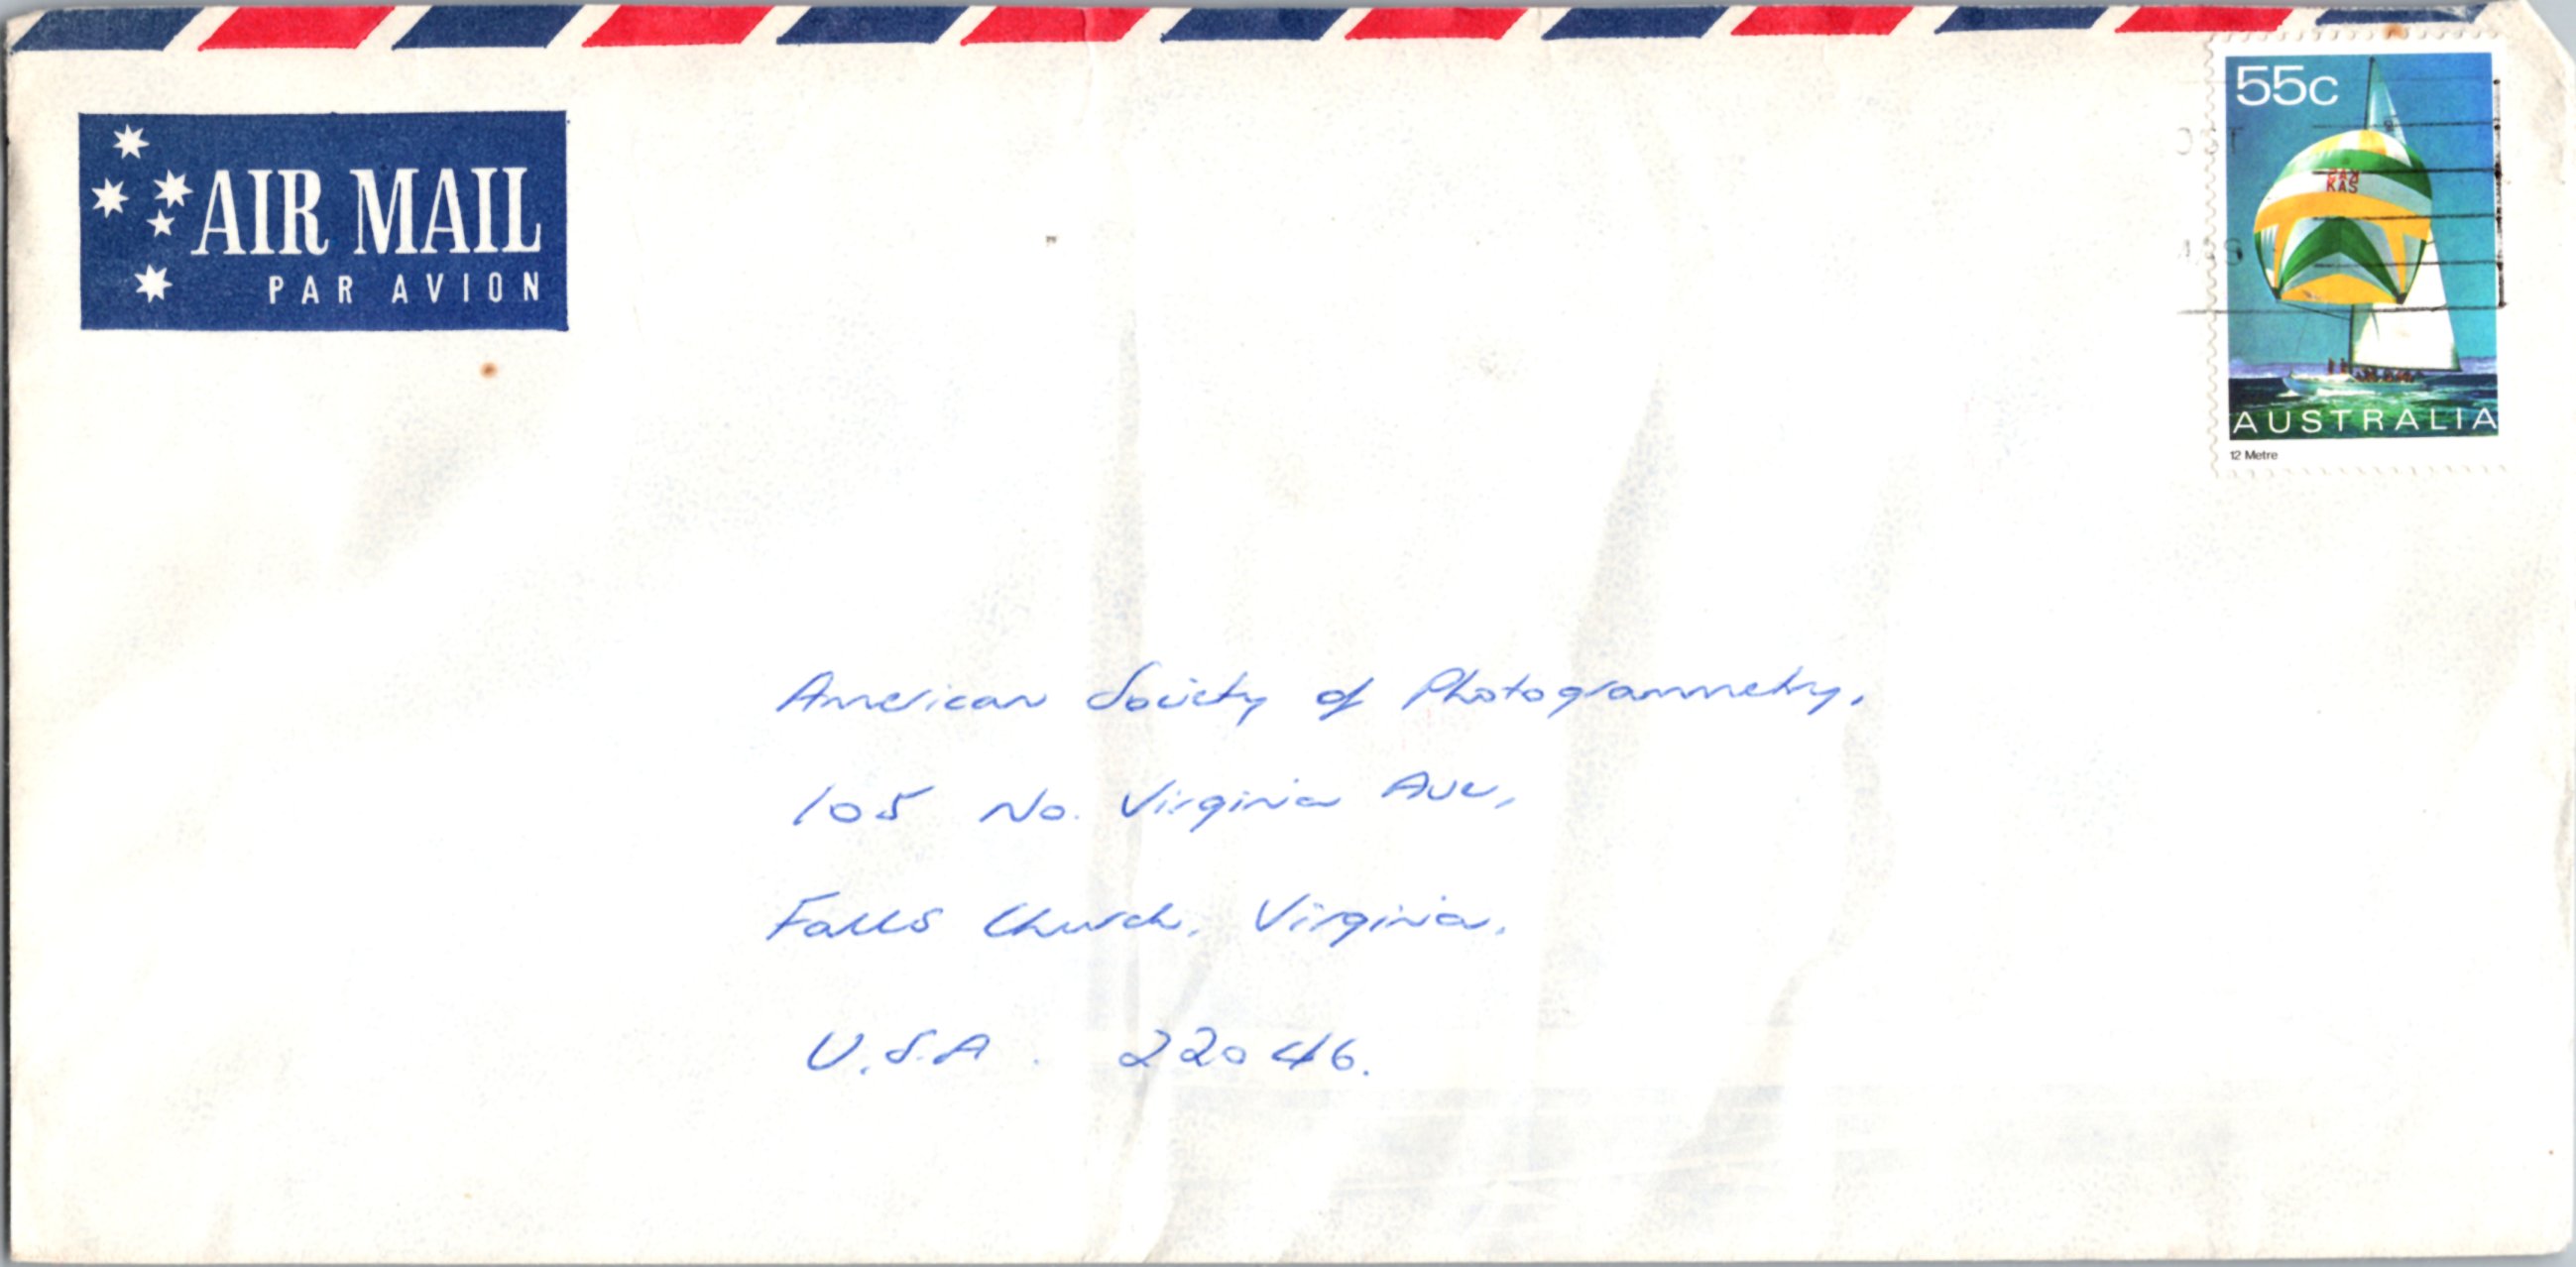 AIR MAIL
PAR AVION
55c
KAS
AUSTRALIA
12 Metre
American Society of Photogrammetry,
105 No. Virginia Ave,
Falls Church, Virginia,
U.S.A. 22046.